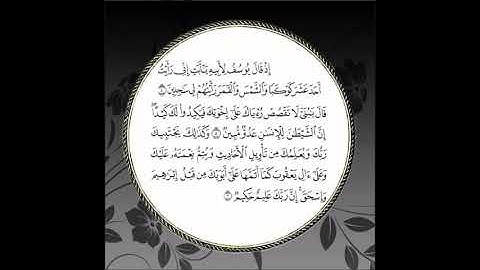 إِذْ قَالَ يُوسُفُ لِأَبِيهِ يَٰٓأَبَتِ إِنِّى رَأَيْتُ
أَحَدَ عَشَرَ كَوْكَبًا وَٱلشَّمْسَ وَٱلْقَمَرَ رَأَيْتُهُمْ لِى سَٰجِدِينَ
قَالَ يَٰبُنَىَّ لَا تَقْصُصْ رُءْيَاكَ عَلَىٰٓ إِخْوَتِكَ فَيَكِيدُوا۟ لَكَ كَيْدًا
إِنَّ ٱلشَّيْطَٰنَ لِلْإِنسَٰنِ عَدُوٌّ مُّبِينٌ وَكَذَٰلِكَ يَجْتَبِيكَ
رَبُّكَ وَيُعَلِّمُكَ مِن تَأْوِيلِ ٱلْأَحَادِيثِ وَيُتِمُّ نِعْمَتَهُۥ عَلَيْكَ
وَعَلَىٰٓ ءَالِ يَعْقُوبَ كَمَآ أَتَمَّهَا عَلَىٰٓ أَبَوَيْكَ مِن قَبْلُ إِبْرَٰهِيمَ
وَإِسْحَٰقَ إِنَّ رَبَّكَ عَلِيمٌ حَكِيمٌ